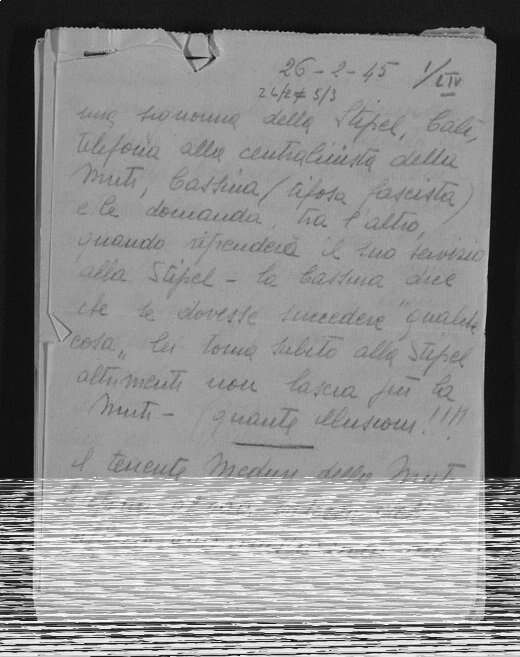 26-2-45 1/LIV
24/2 ≠ 5/3
una signorina della Stipel, Calì,
telefona alla centralinista della
Muti, Cassina (tifosa fascista)
e le domanda, tra l'altro,
quando riprenderà il suo servizio
alla Stipel - la Cassina dice
che se dovesse succedere "qualche
cosa" lei torna subito alla Stipel
altrimenti non lascia più la
Muti - quante illusioni!!!!
il tenente della Muti